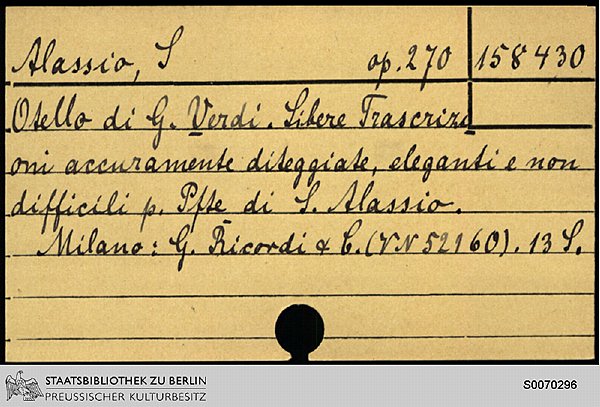 Alassio, S op. 270 158430
Otello di G. Verdi. Libere Trascrizi
oni accuramente diteggiate, eleganti e non
difficili p. Pfte di S. Alassio.
Milano: G. Ricordi & C. (VN 52160). 13 S.
STAATSBIBLIOTHEK ZU BERLIN
PREUSSISCHER KULTURBESITZ
S0070296